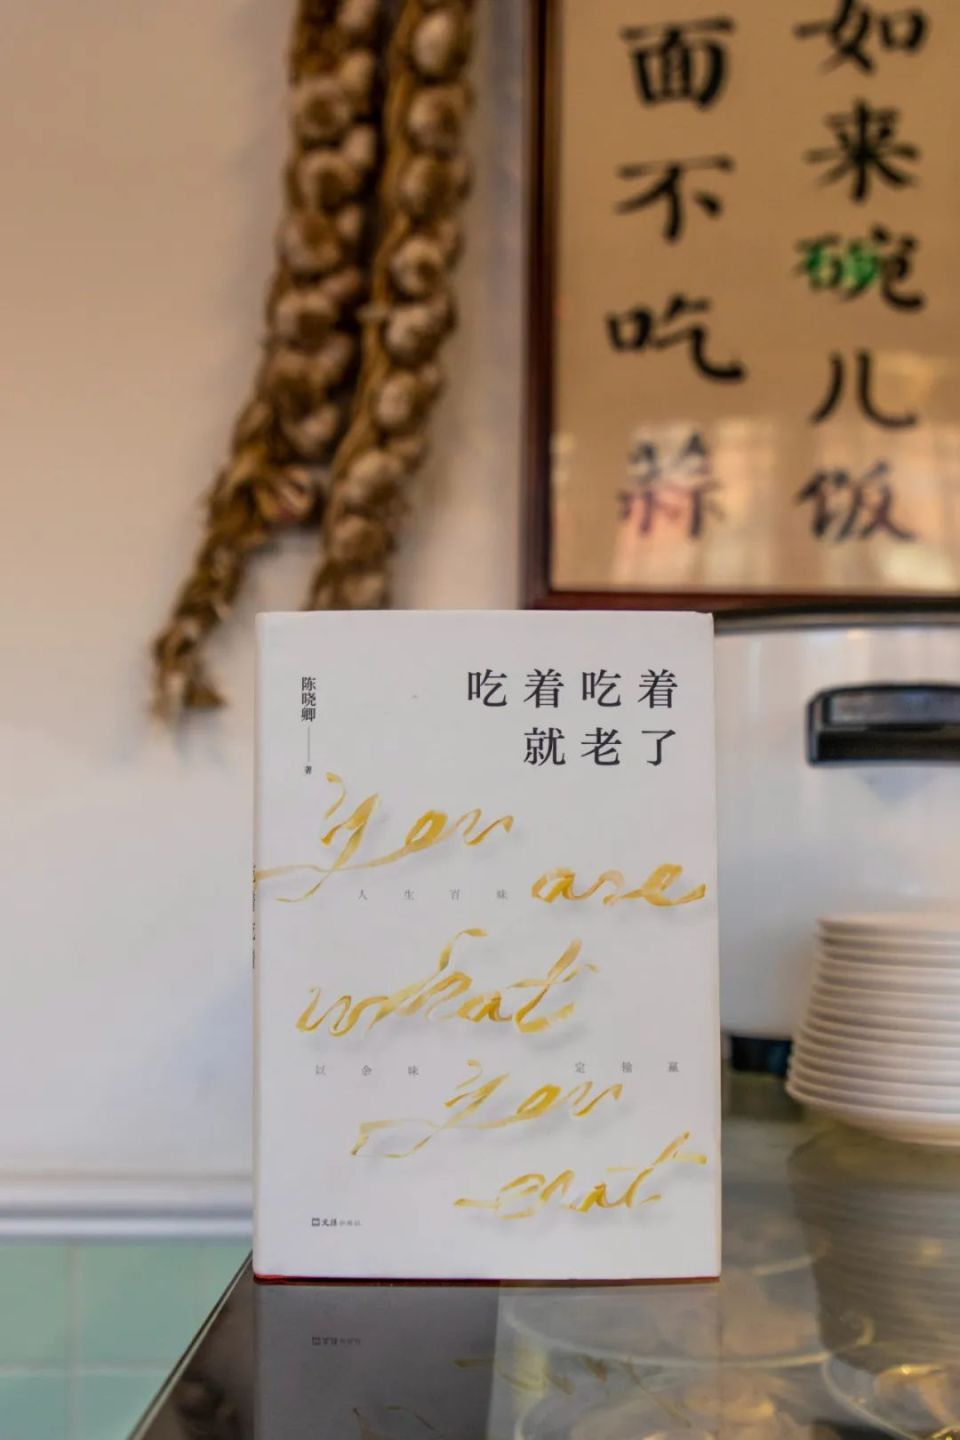 如来碗儿饭
面不吃蒜
吃着吃着
就老了
陈晓卿
著
you
are
人生百味
what
以余味
定输赢
you
eat
文汇出版社